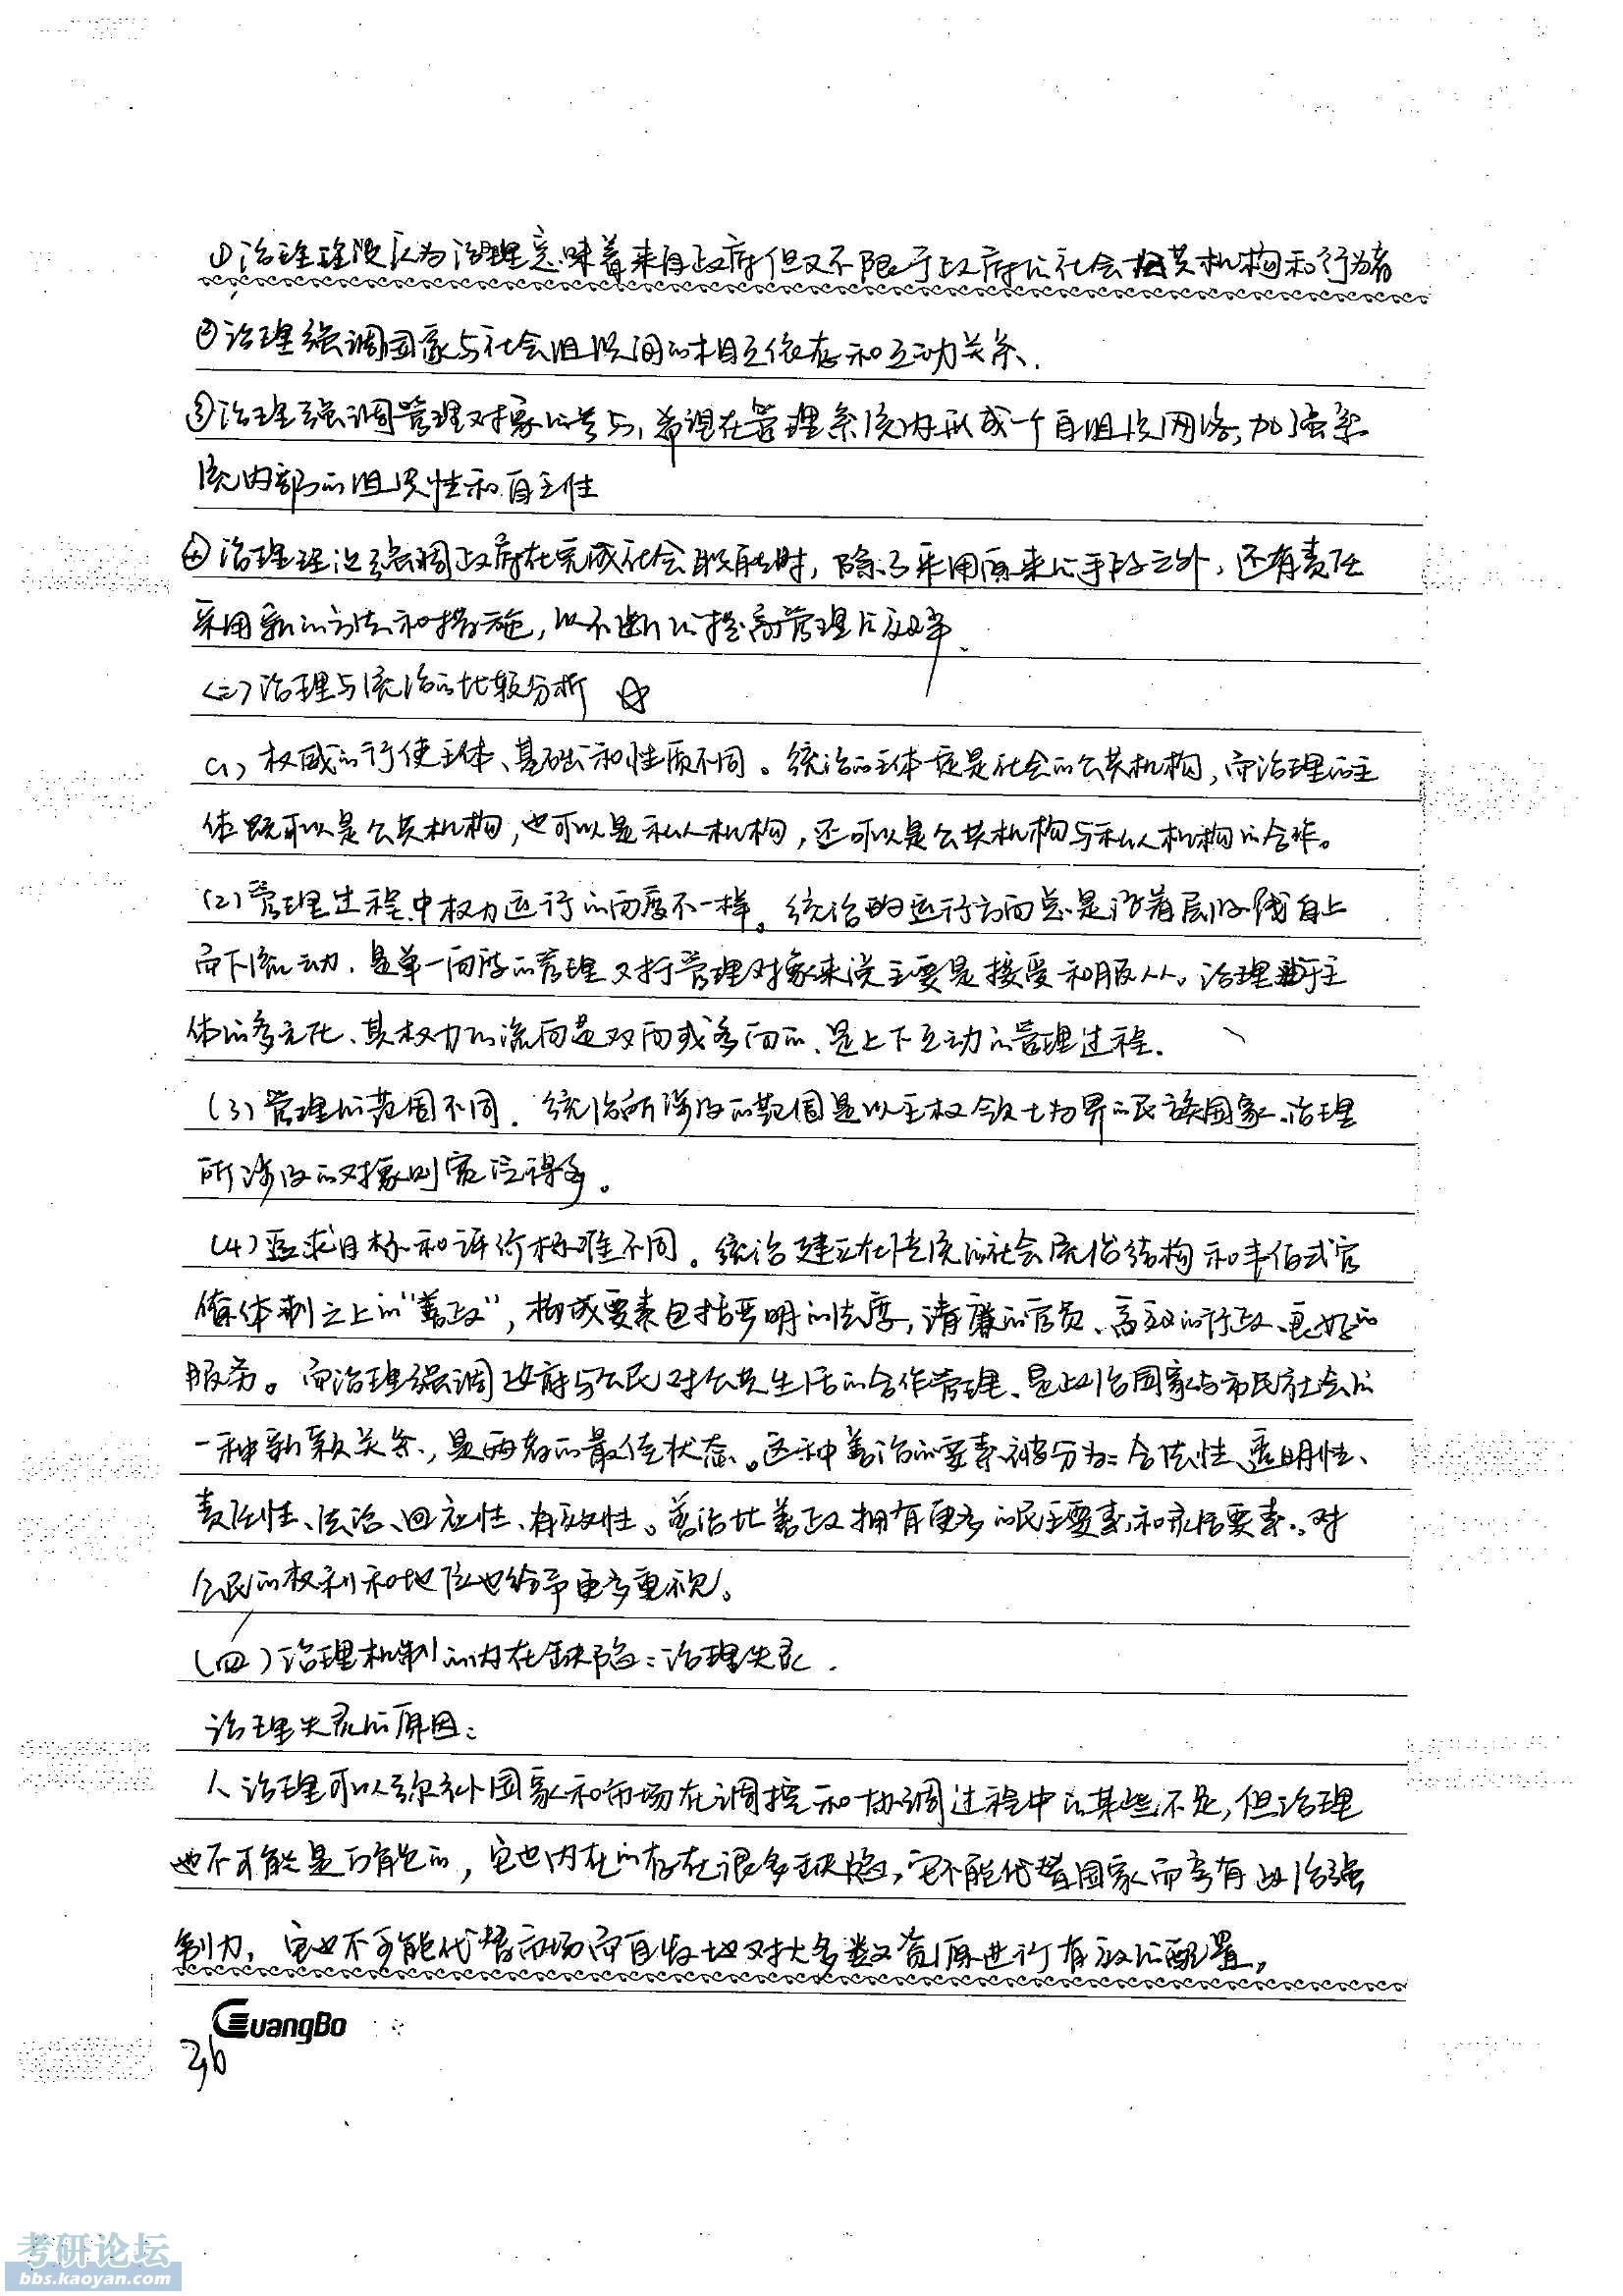 ①治理理论认为治理意味着来自政府但又不限于政府的社会公共机构和行为者
②治理强调国家与社会组织间的相互依存和互动关系.
③治理强调管理对象的参与,希望在管理系统内形成一个自组织网络,加强系
统内部的组织性和自主性
④治理理论强调政府在完成社会职能时,除了采用原来的手段之外,还有责任
采用新的方法和措施,以不断的提高管理的效率.
(三)治理与统治的比较分析 ☆
(1)权威的行使主体、基础和性质不同。统治的主体一定是社会的公共机构,而治理的主
体既可以是公共机构,也可以是私人机构,还可以是公共机构与私人机构的合作。
(2)管理过程中权力运行的向度不一样。统治的运行方向总是沿着层级线自上
而下流动.是单一向度的管理 对于管理对象来说主要是接受和服从。治理由于主
体的多元化、其权力的流向是双向或多向的、是上下互动的管理过程.
(3)管理的范围不同.统治所涉及的范围是以主权领土为界的民族国家.治理
所涉及的对象则宽泛得多。
(4)追求目标和评价标准不同。统治建立在传统的社会统治结构和韦伯式官
僚体制之上的"善政",构成要素包括严明的法度,清廉的官员、高效的行政、良好的
服务。而治理强调政府与公民对公共生活的合作管理、是政治国家与市民社会的
一种新颖关系,是两者的最佳状态。这种善治的要素被分为:合法性、透明性、
责任性、法治、回应性、有效性。善治比善政拥有更多的民主要素和永恒要素.对
公民的权利和地位也给予更多重视。
(四)治理机制的内在缺陷:治理失灵.
治理失灵的原因:
1、治理可以弥补国家和市场在调控和协调过程中的某些不足,但治理
也不可能是万能的,它也内在的存在很多缺陷,它不能代替国家而享有政治强
制力,它也不可能代替市场而自发地对大多数资源进行有效的配置,
GuangBo
36
考研论坛
bbs.kaoyan.com